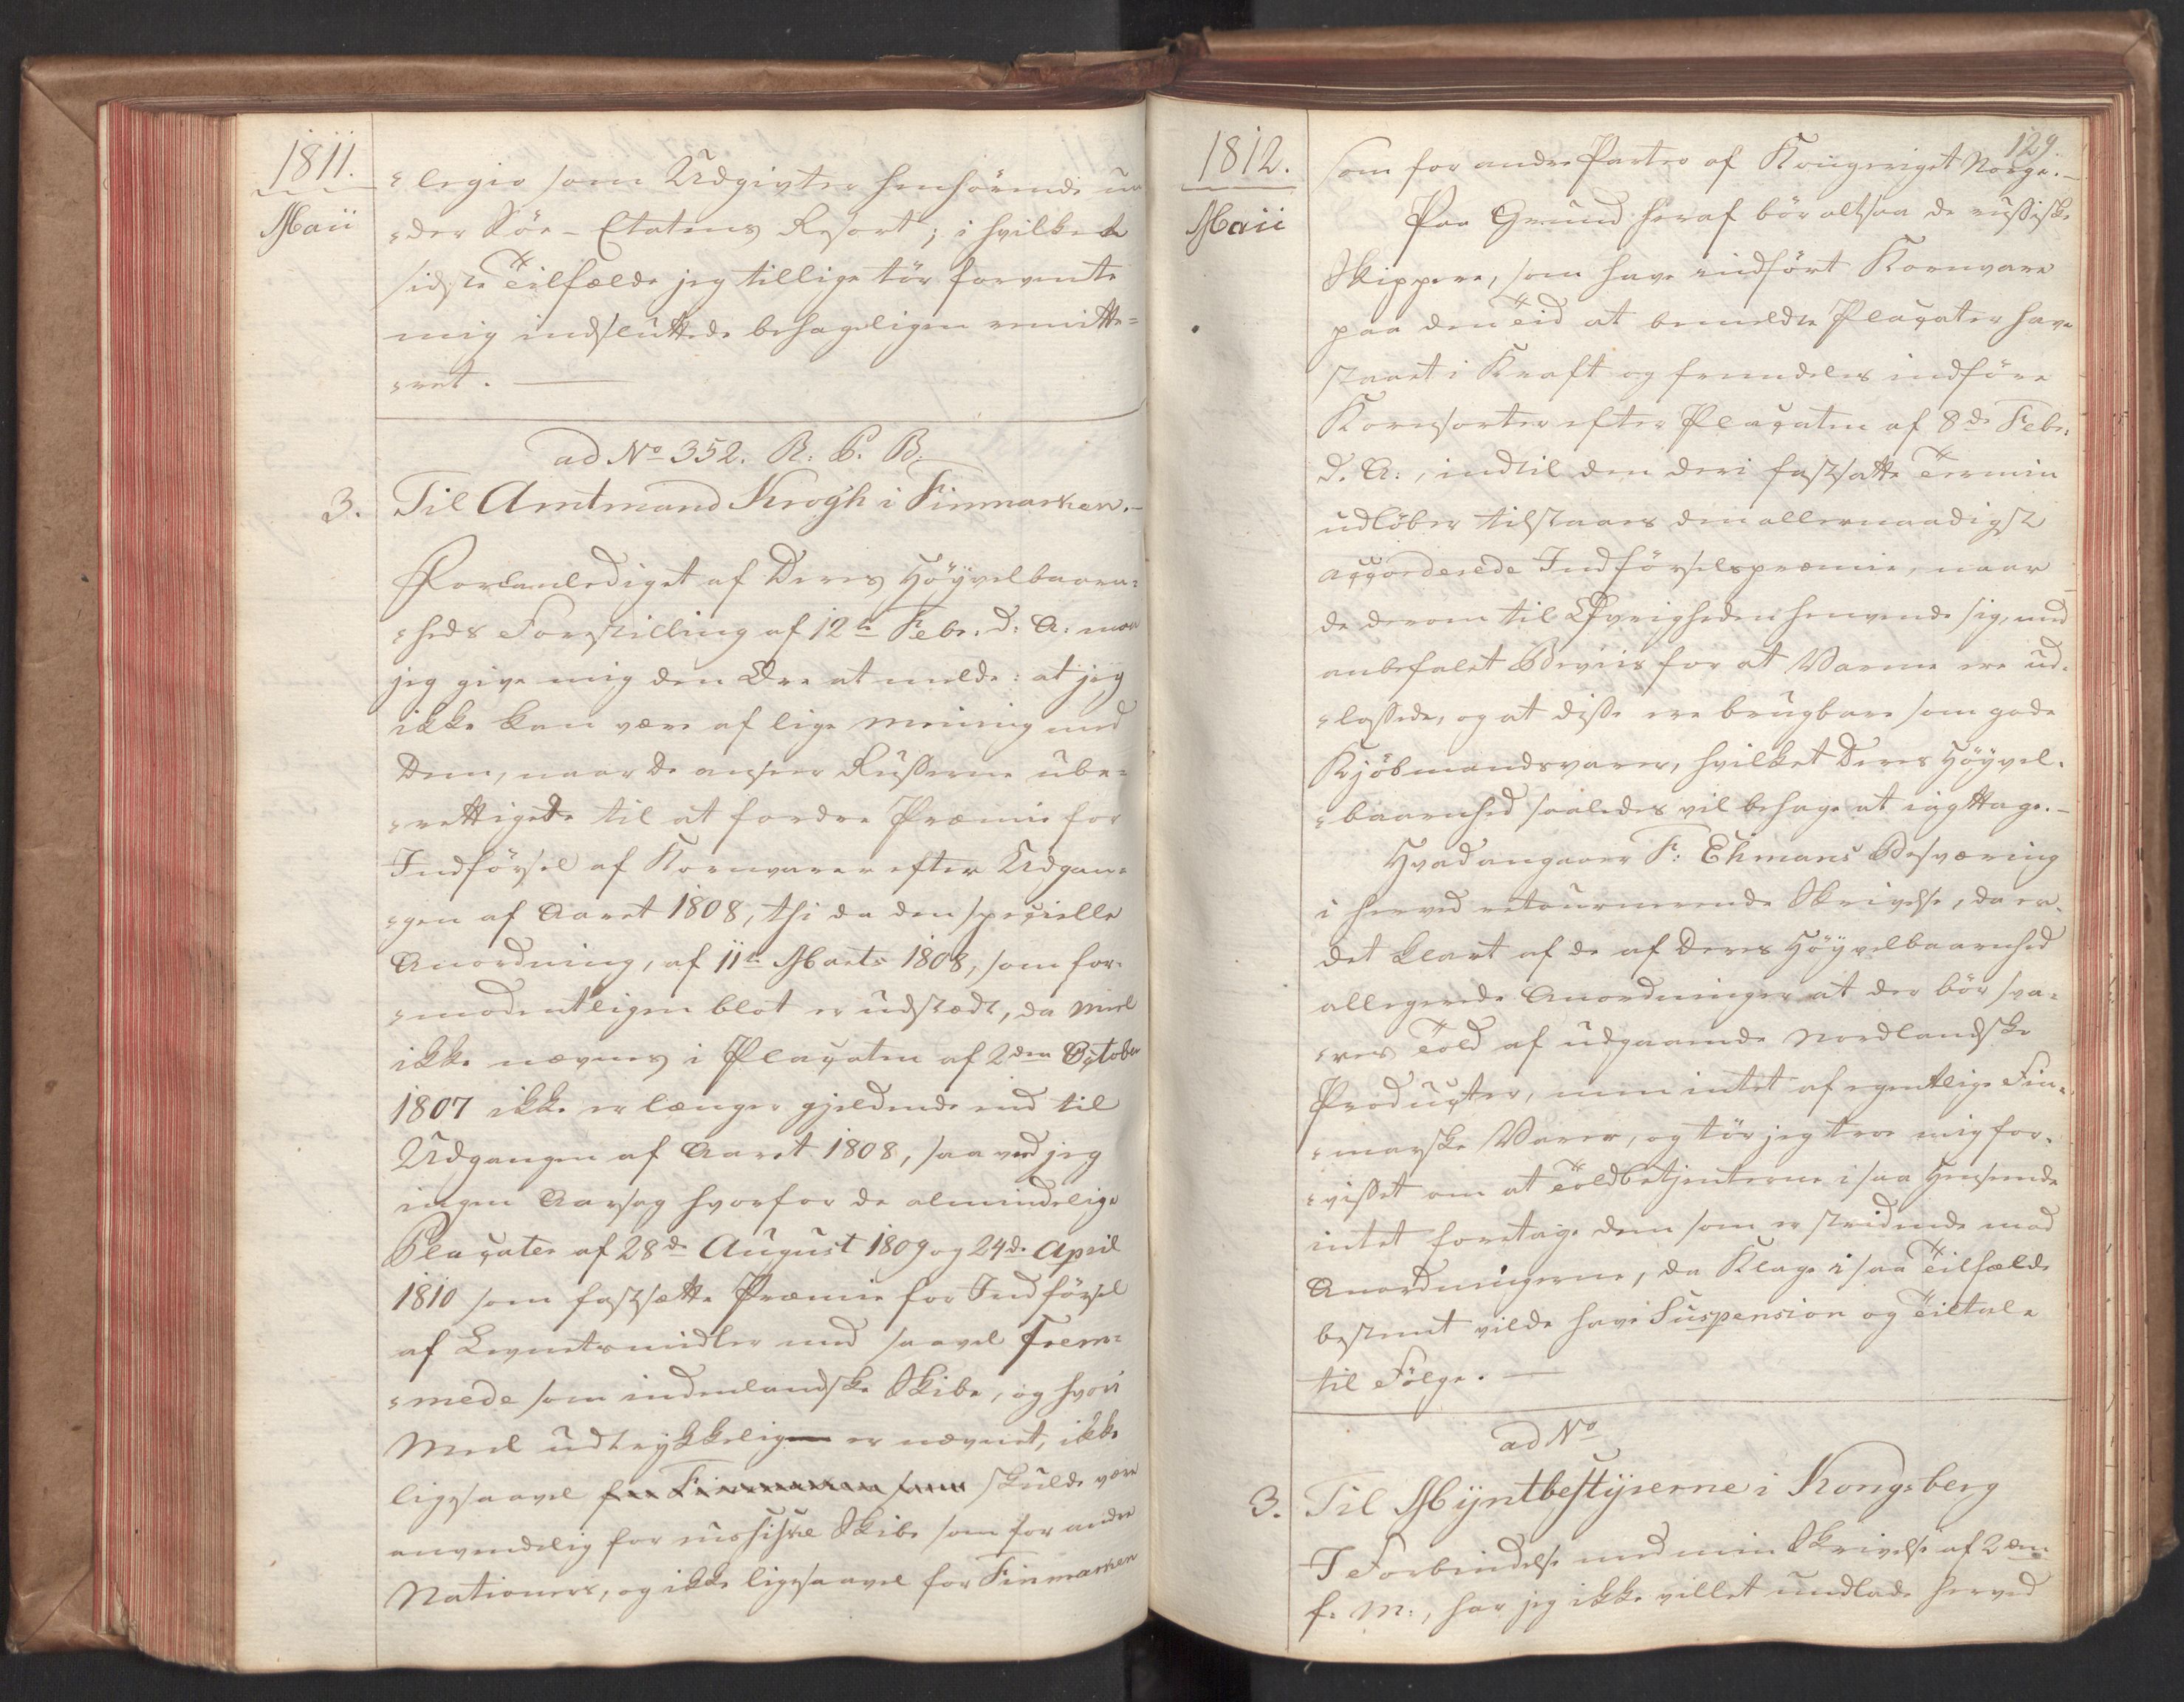 1811.
Maii
legio som Udgivter henhörende un
der Söe-Etatens Resort; i hvilket
sidste Tilfælde jeg tillige tör forvente
mig indsluttede behageligen remitte=
ret. —
ad No 352. R. C. B.
3. Til Amtmand Krogh i Finmarken.—
Foranlediget af Deres Höÿvelbaarn=
heds Forestilling af 12te Febr: d: A: maa
jeg give mig den Ære at melde: at jeg
ikke kan være af lige Meening med
Dem, naar De anseer Russerne ube=
rettigede til at fordre Præmie for
Indförsel af Kornvarer efter Udgan=
gen af Aaret 1808, thi da den specielle
Anordning, af 11te Marts 1808, som for=
modentligen blot er udstædt, da Meel
ikke nævnes i Placaten af 2den October
1807 ikke er længer gjeldende end til
Udgangen af Aaret 1808, saa veed jeg
ingen Aarsag hvorfor de almindelige
Placater af 28de August 1809 og 24de April
1810 som fastsætte Præmie for Indförsel
af Levnetsmidler med saavel frem=
mede som indenlandske Skibe, og hvori
Meel udtrykkelig er nævnet, ikke
ligesaavel for Finmarken som skulde være
anvendelig for russiske Skibe som for andre
Nationers, og ikke ligesaavel for Finmarken
1812.
Maii
129.
som for andre Parter af Kongeriget Norge.—
Paa Grund heraf bör altsaa de russiske
Skippere, som have indfört Kornvare
paa den Tid at bemeldte Placater have
staaet i Kraft og fremdeles indföre
Kornsorter efter Placaten af 8de Febr:
d. A:, indtil den deri fastsatte Termin
udlöber tilstaaes den allernaadigst
accorderede Indförselspræmie, naar
de derom til Övrigheden henvende sig, med
anbefalet Beviis for at Varene ere ud=
lossede, og at disse ere brugbare som gode
Kjöbmandsvarer, hvilket Deres Höÿvel=
baarnhed saaledes vil behage at iagttage.—
Hvad angaaer F: Ehmans Besværing
i herved retournerende Skrivelse, da er
det klart af de af Deres Höÿvelbaarnhed
allegerede Anordninger at der bör sva=
res Told af udgaaende Nordlandske
Producter, men intet af egentlige Fin=
marske Varer, og tör jeg troe mig for=
visset om at Toldbetjenterne i saa Henseende
intet foretage dem som er stridende mod
Anordningerne, da Klage i saa Tilfælde
bestemt vilde have Suspension og Tiltale
til Fölge. —
ad No
3. Til Mÿntbestÿrerne i Kongsberg
I Forbindelse med min Skrivelse af 2den
f: M:, har jeg ikke villet undlade herved